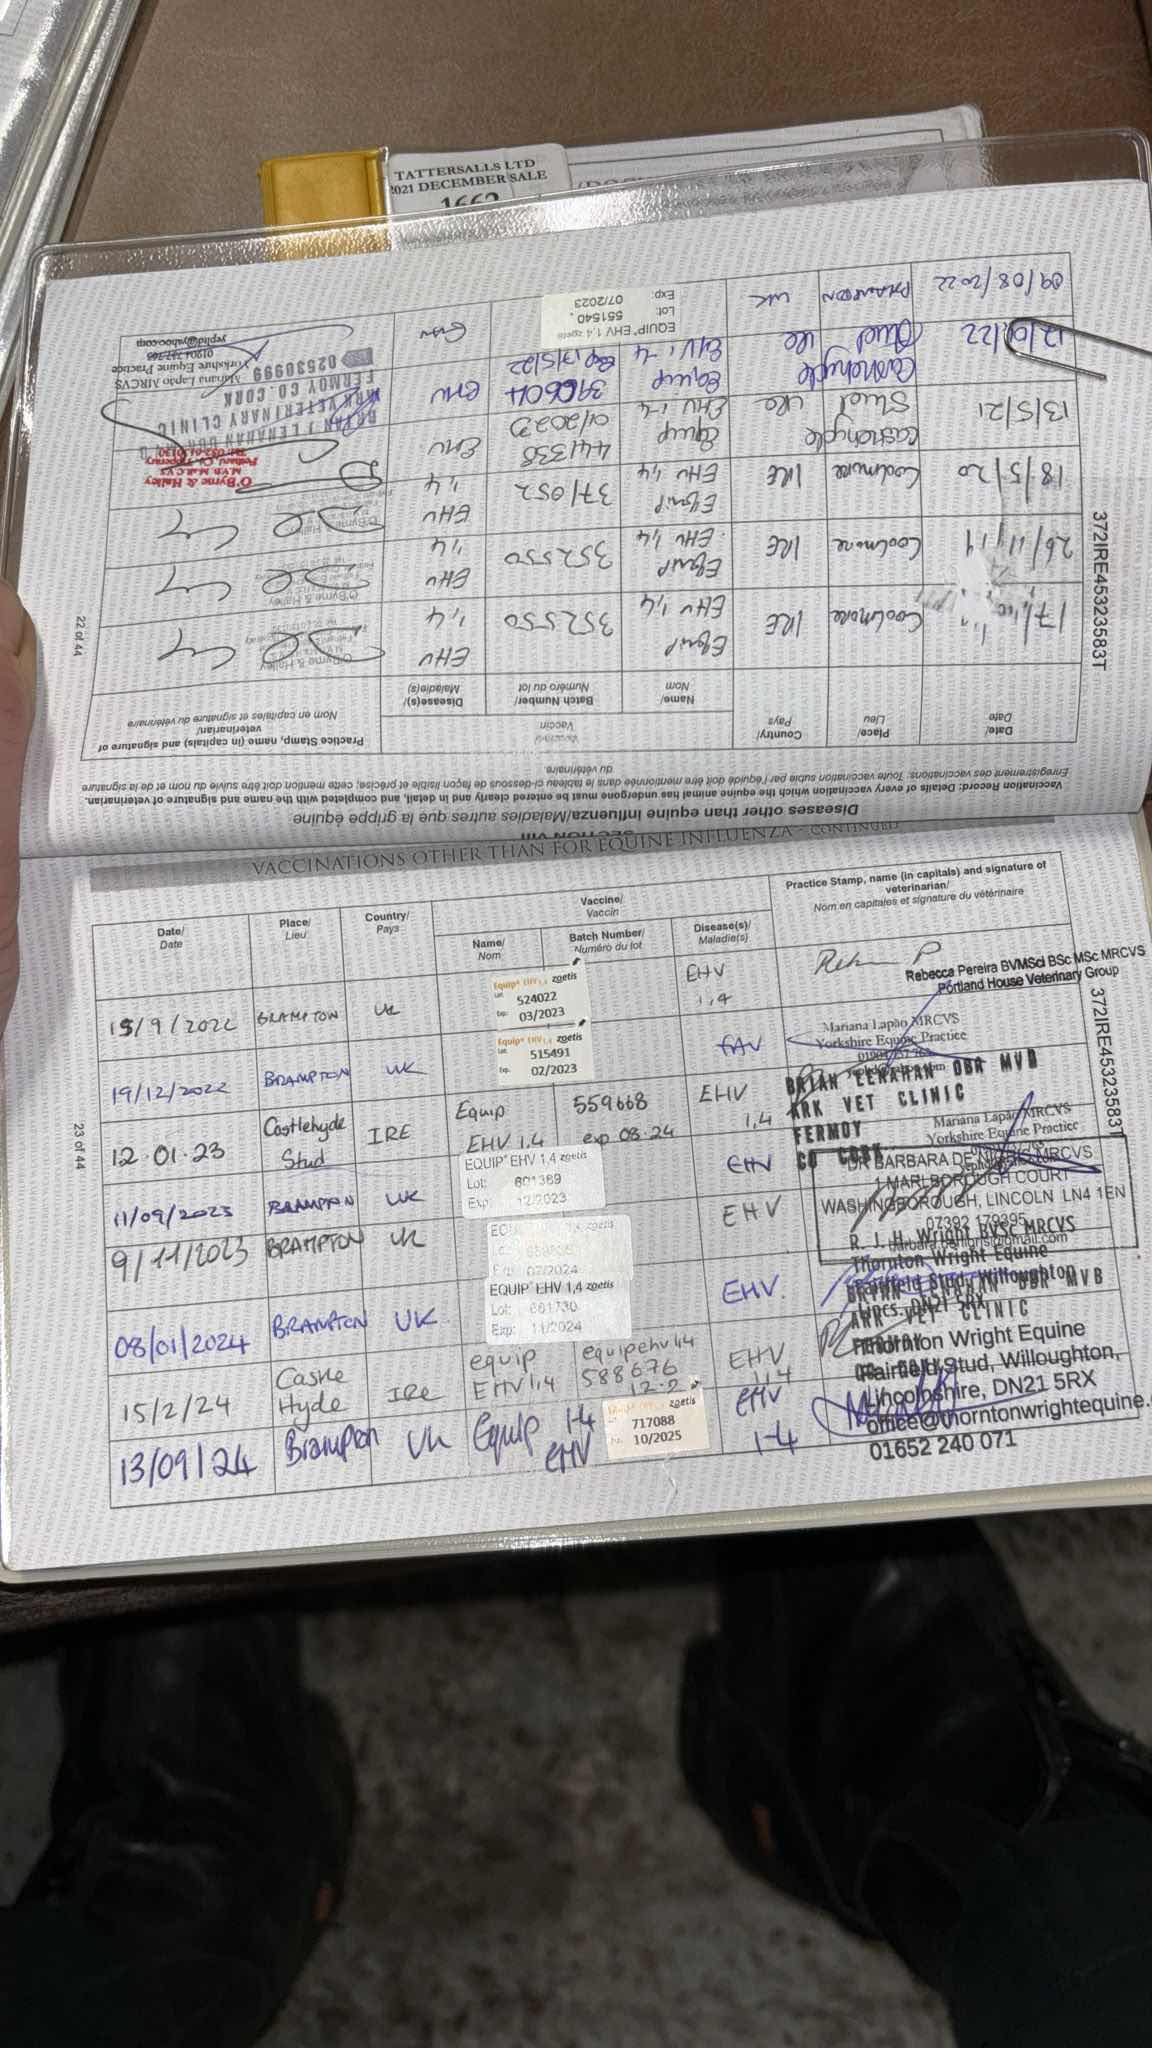 TATTERSALLS LTD
2021 DECEMBER SALE
1662
372IRE45323583T
22 of 44
Diseases other than equine influenza/Maladies autres que la grippe équine
Vaccination Record: Details of every vaccination which the equine animal has undergone must be entered clearly and in detail, and completed with the name and signature of veterinarian.
Enregistrement des vaccinations: Toute vaccination subie par l'équidé doit être mentionnée dans le tableau ci-dessous de façon lisible et précise, cette mention doit être suivie du nom et de la signature
du vétérinaire.
Date/ Date
Place/ Lieu
Country/ Pays
Vaccin
Name/ Nom
Batch Number/ Numéro du lot
Disease(s)/ Maladie(s)
Practice Stamp, name (in capitals) and signature of veterinarian/
Nom en capitales et signature du vétérinaire
Coolmore IRE Equip EHV 1,4 352550 EHV 1,4 O'Byrne & Halley
26/11/19 Coolmore IRE Equip EHV 1,4 352550 EHV 1,4 O'Byrne & Halley
18/5/20 Coolmore IRE Equip EHV 1,4 371052 EHV 1,4 O'Byrne & Halley
13/5/21 Castlehyde Stud Equip EHV 1-4 441338 01/2023 EHV
Castlehyde Stud Equip EHV 1-4 EHV
FERMOY CO. CORK
02530999
09/08/2022 BRAMPTON UK
EQUIP® EHV 1,4 zoetis
Lot: 551540
Exp: 07/2023
EHV
Mariana Lapão MRCVS
Yorkshire Equine Practice
VACCINATIONS OTHER THAN FOR EQUINE INFLUENZA - CONTINUED
Date/ Date
Place/ Lieu
Country/ Pays
Vaccine/ Vaccin
Name/ Nom
Batch Number/ Numéro du lot
Disease(s)/ Maladie(s)
Practice Stamp, name (in capitals) and signature of veterinarian/
Nom en capitales et signature du vétérinaire
15/9/2022 BRAMPTON UK
Equip® EHV 1,4 zoetis
Lot: 524022
Exp. 03/2023
EHV 1,4
Rebecca Pereira BVMSci BSc MSc MRCVS
Portland House Veterinary Group
19/12/2022 BRAMPTON UK
Equip® EHV 1,4 zoetis
Lot: 515491
Exp. 02/2023
Mariana Lapão MRCVS
Yorkshire Equine Practice
12.01.23 Castlehyde Stud IRE Equip EHV 1.4 559668 exp 08.24 EHV 1,4
BRIAN LENAHAN DBA MVB
ARK VET CLINIC
FERMOY
CO CORK
11/09/2023 BRAMPTON UK
EQUIP® EHV 1,4 zoetis
Lot: 601369
Exp: 12/2023
EHV
Mariana Lapão MRCVS
Yorkshire Equine Practice
9/11/2023 BRAMPTON UK
EHV
MRCVS
1 MARLBOROUGH COURT
WASHINGBOROUGH, LINCOLN LN4 1EN
07392 179395
08/01/2024 BRAMPTON UK
EQUIP® EHV 1,4 zoetis
Lot: 661730
Exp: 11/2024
EHV.
R. J. H. Wright BVSC MRCVS
Thornton Wright Equine
Fairfield Stud, Willoughton
Lincs. DN21 5RX
15/2/24 Castle Hyde IRe equip EHV 1,4 equip ehv 1,4 588676 EHV 1,4
BRIAN LENAHAN DBA MVB
ARK VET CLINIC
FERMOY
13/09/24 Brampton UK Equip 1-4 EHV
zoetis
717088
10/2025
EHV 1-4
Thornton Wright Equine
Fairfield Stud, Willoughton,
Lincolnshire, DN21 5RX
office@thorntonwrightequine.
01652 240 071
23 of 44
372IRE45323583T